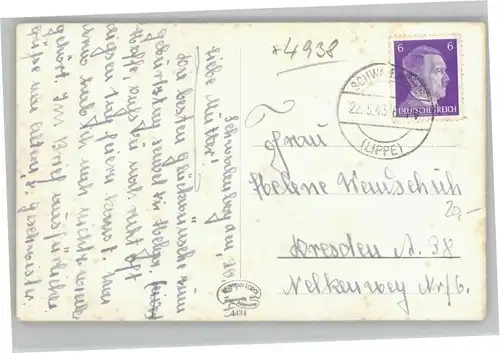 *4938
6 6
DEUTSCHES REICH
SCHWA
22.5.43
(LIPPE)
Frau
Helene Wemschuh
Dresden A. 38
Nelkenweg Nr. 6.
20,-
4484
Schwalenberg, den
Liebe Mutter!
Die besten Glückwünsche zum
Geburtstag sendet Dir
hoffe, dass Du noch recht oft
diesen Tag feiern kannst. Von
habe ich noch nichts wieder
gehört. Im Brief ausführlicher.
Grüße von Eltern u. Geschwister.